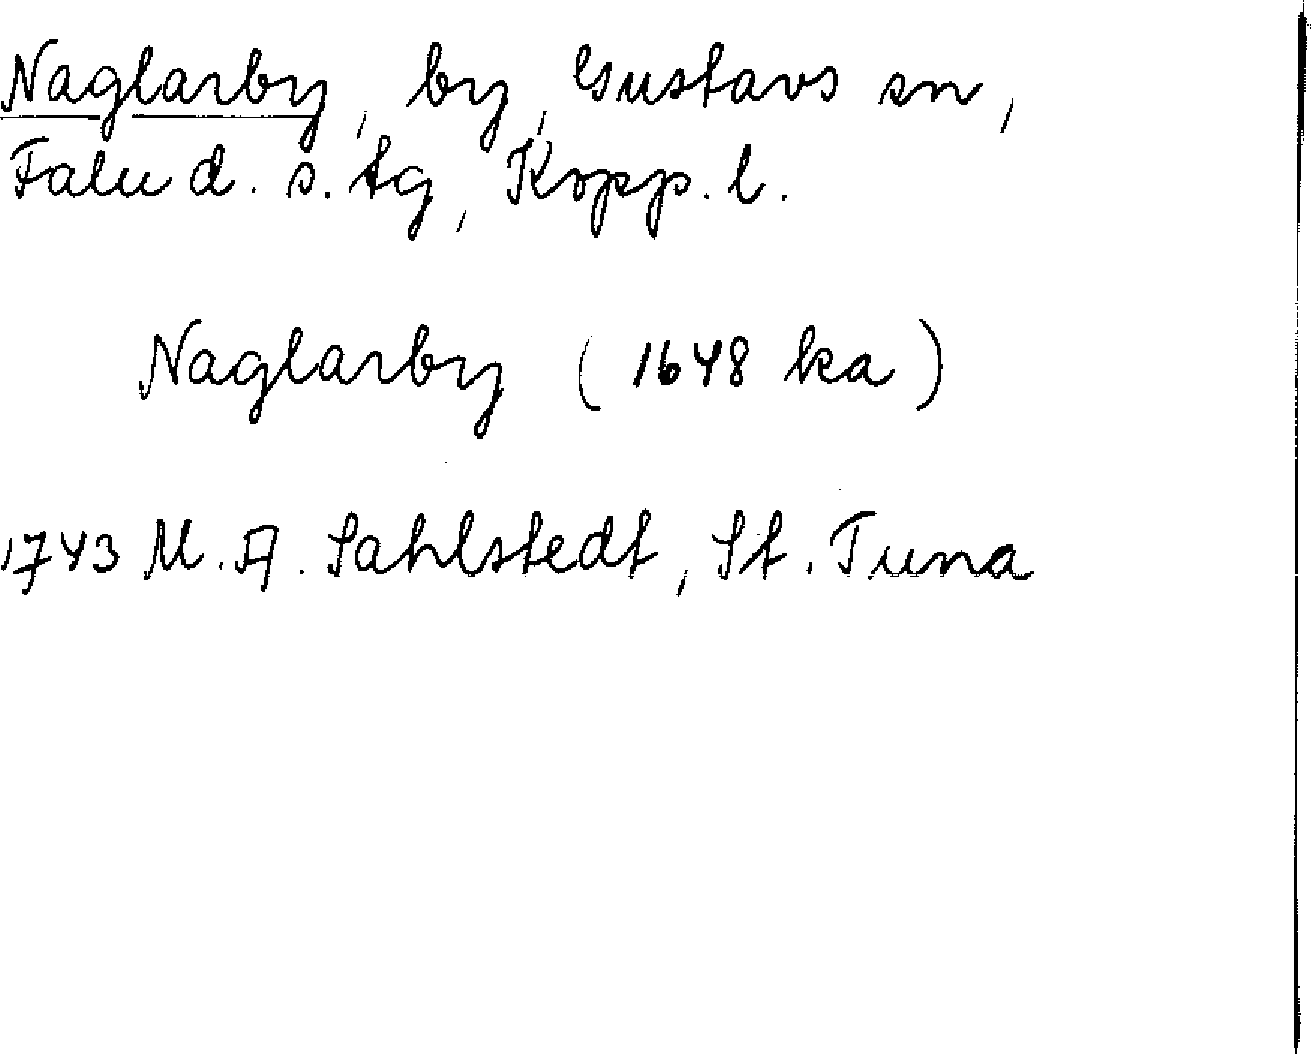 Naglarby, by, Gustavs sn,
Falu d. s. tg, Kopp. l.
Naglarby (1648 ka)
1743 M. A. Sahlstedt, St. Tuna